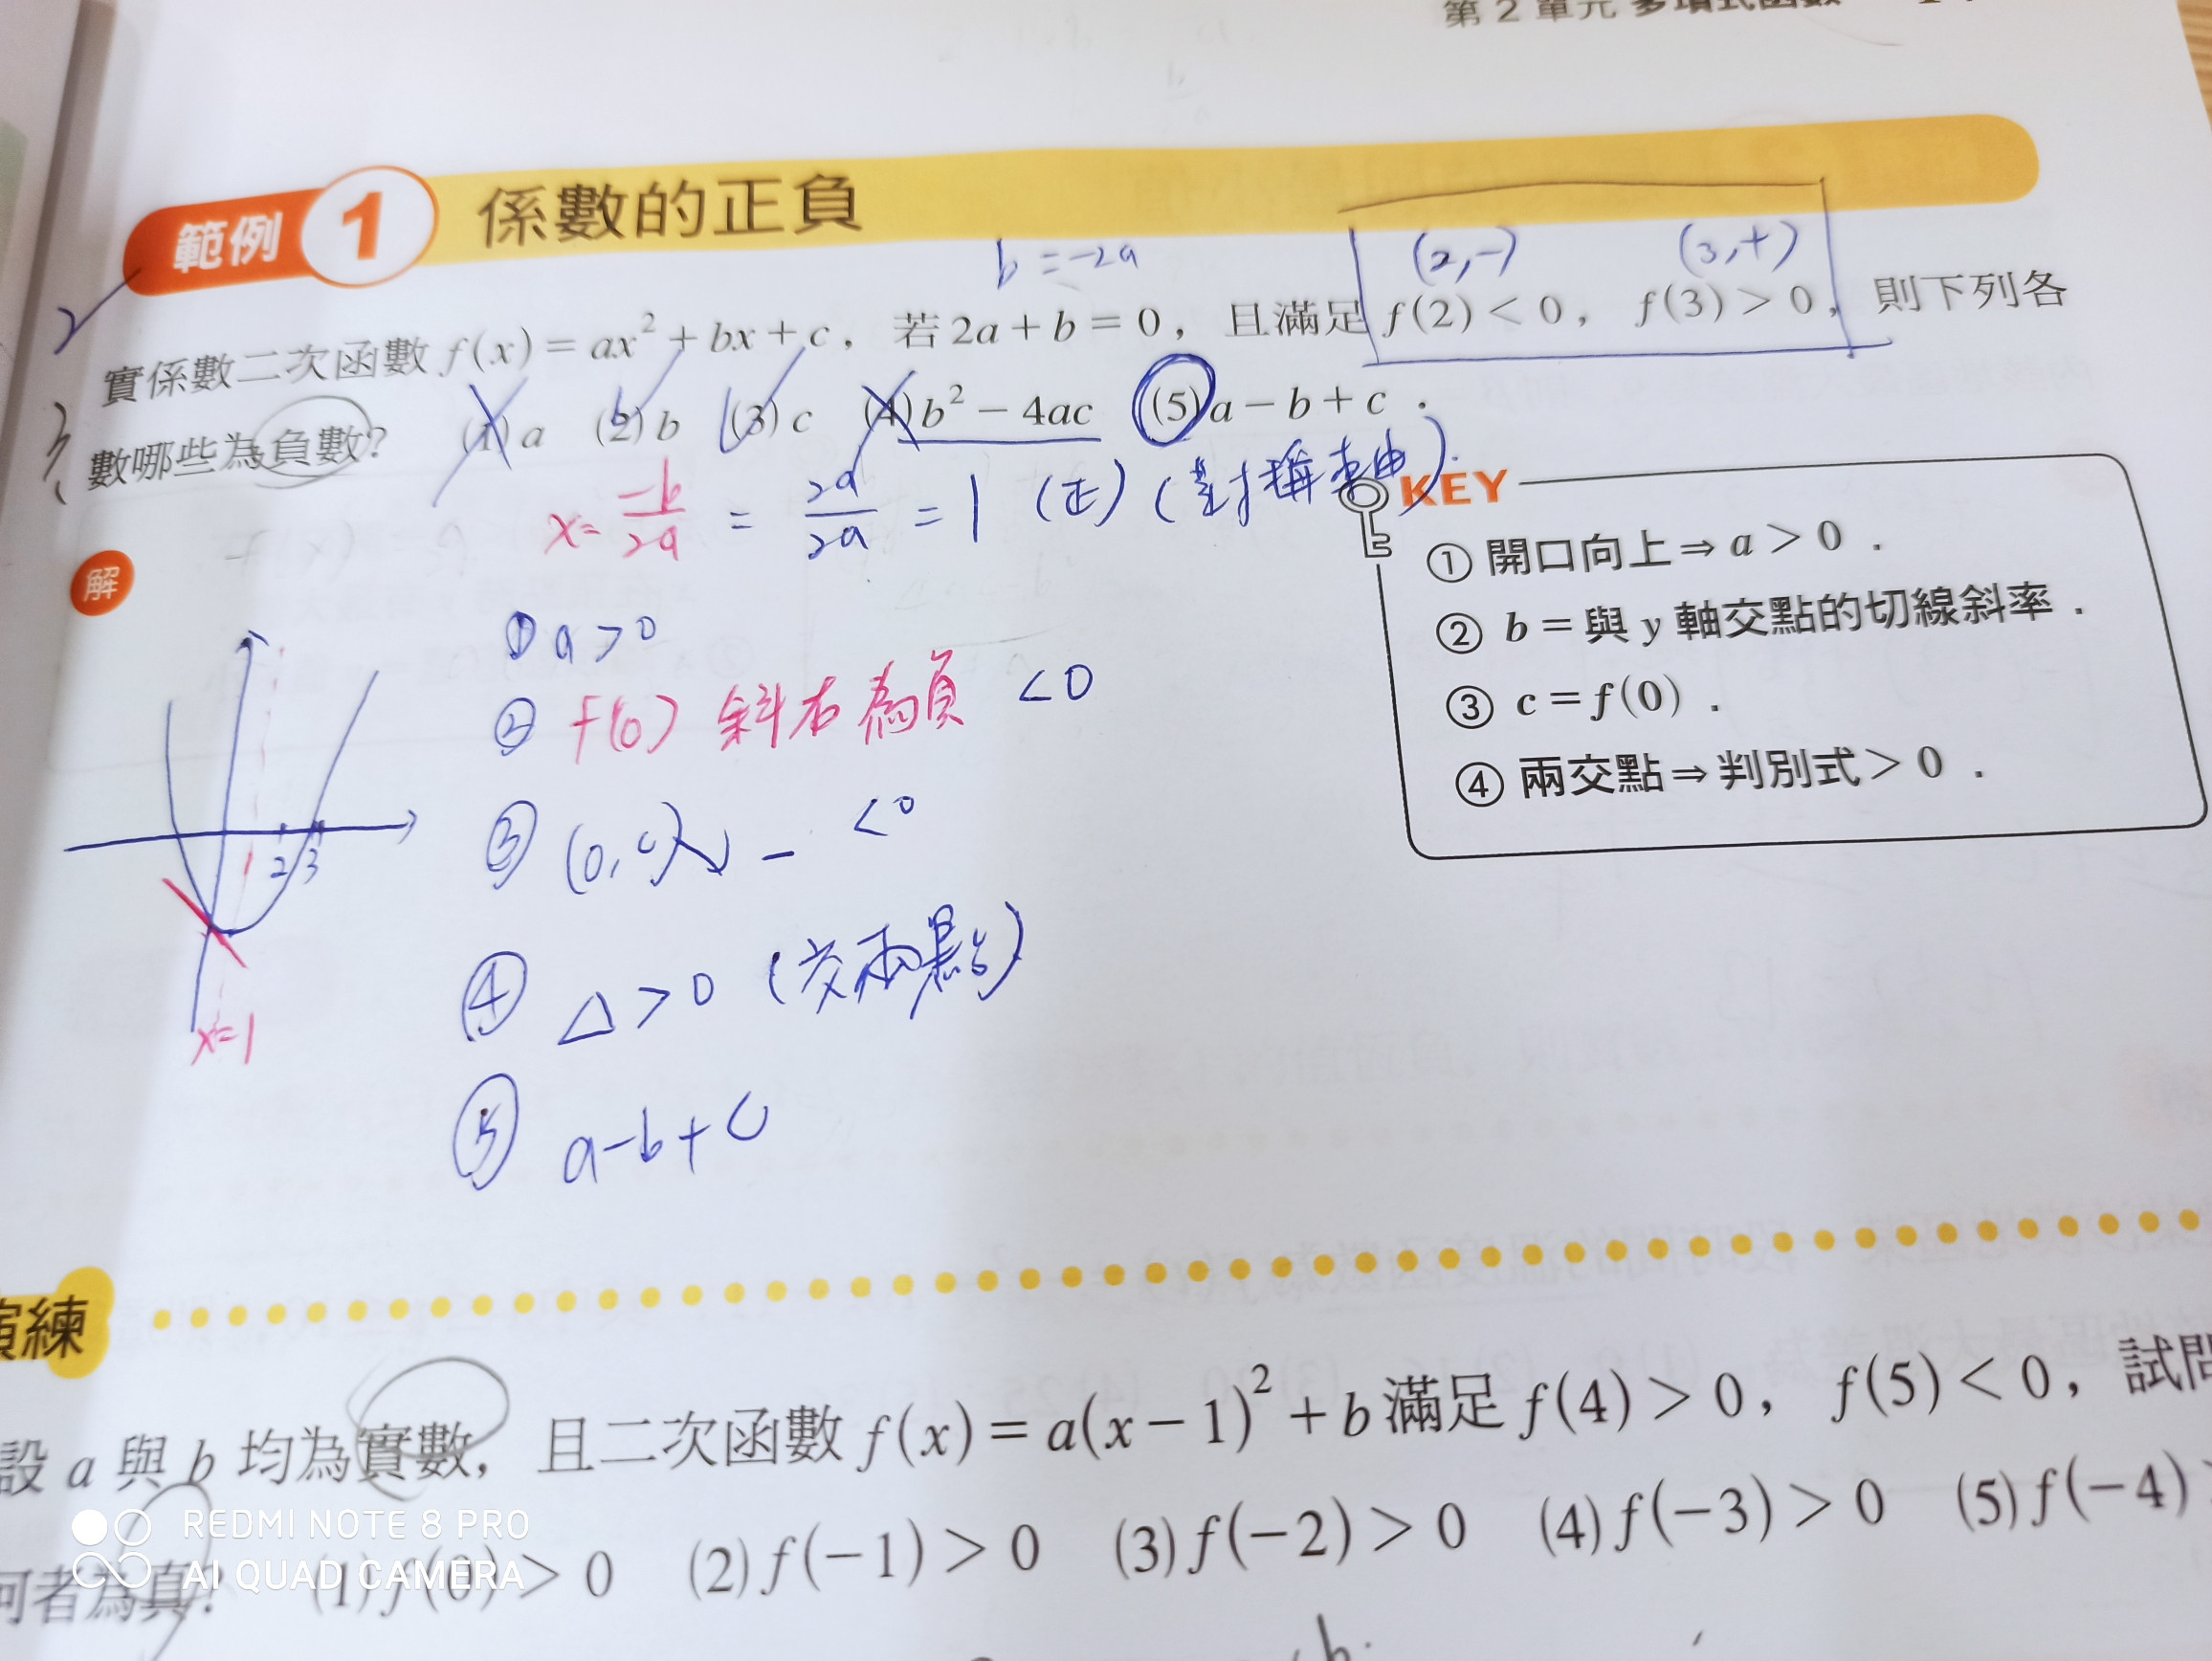 第 2 單元 多項式函數
範例 1 係數的正負
b = -2a
(2,-) (3,+)
實係數二次函數 f(x) = ax² + bx + c，若 2a + b = 0，且滿足 f(2) < 0，f(3) > 0，則下列各
數哪些為負數？ (1) a (2) b (3) c (4) b² − 4ac (5) a − b + c．
x = -b/2a = 2a/2a = 1 (正) (對稱軸)
KEY
① 開口向上 ⇒ a > 0．
② b = 與 y 軸交點的切線斜率．
③ c = f(0)．
④ 兩交點 ⇒ 判別式 > 0．
解
① a > 0
② f(0) 斜右為負 < 0
③ (0, c) - < 0
④ △ > 0 (交兩點)
⑤ a-b+c
1 2 3
x=1
演練
設 a 與 b 均為實數，且二次函數 f(x) = a(x − 1)² + b 滿足 f(4) > 0，f(5) < 0，試問
何者為真？ (1) f(0) > 0 (2) f(−1) > 0 (3) f(−2) > 0 (4) f(−3) > 0 (5) f(−4) >
REDMI NOTE 8 PRO
AI QUAD CAMERA
b.